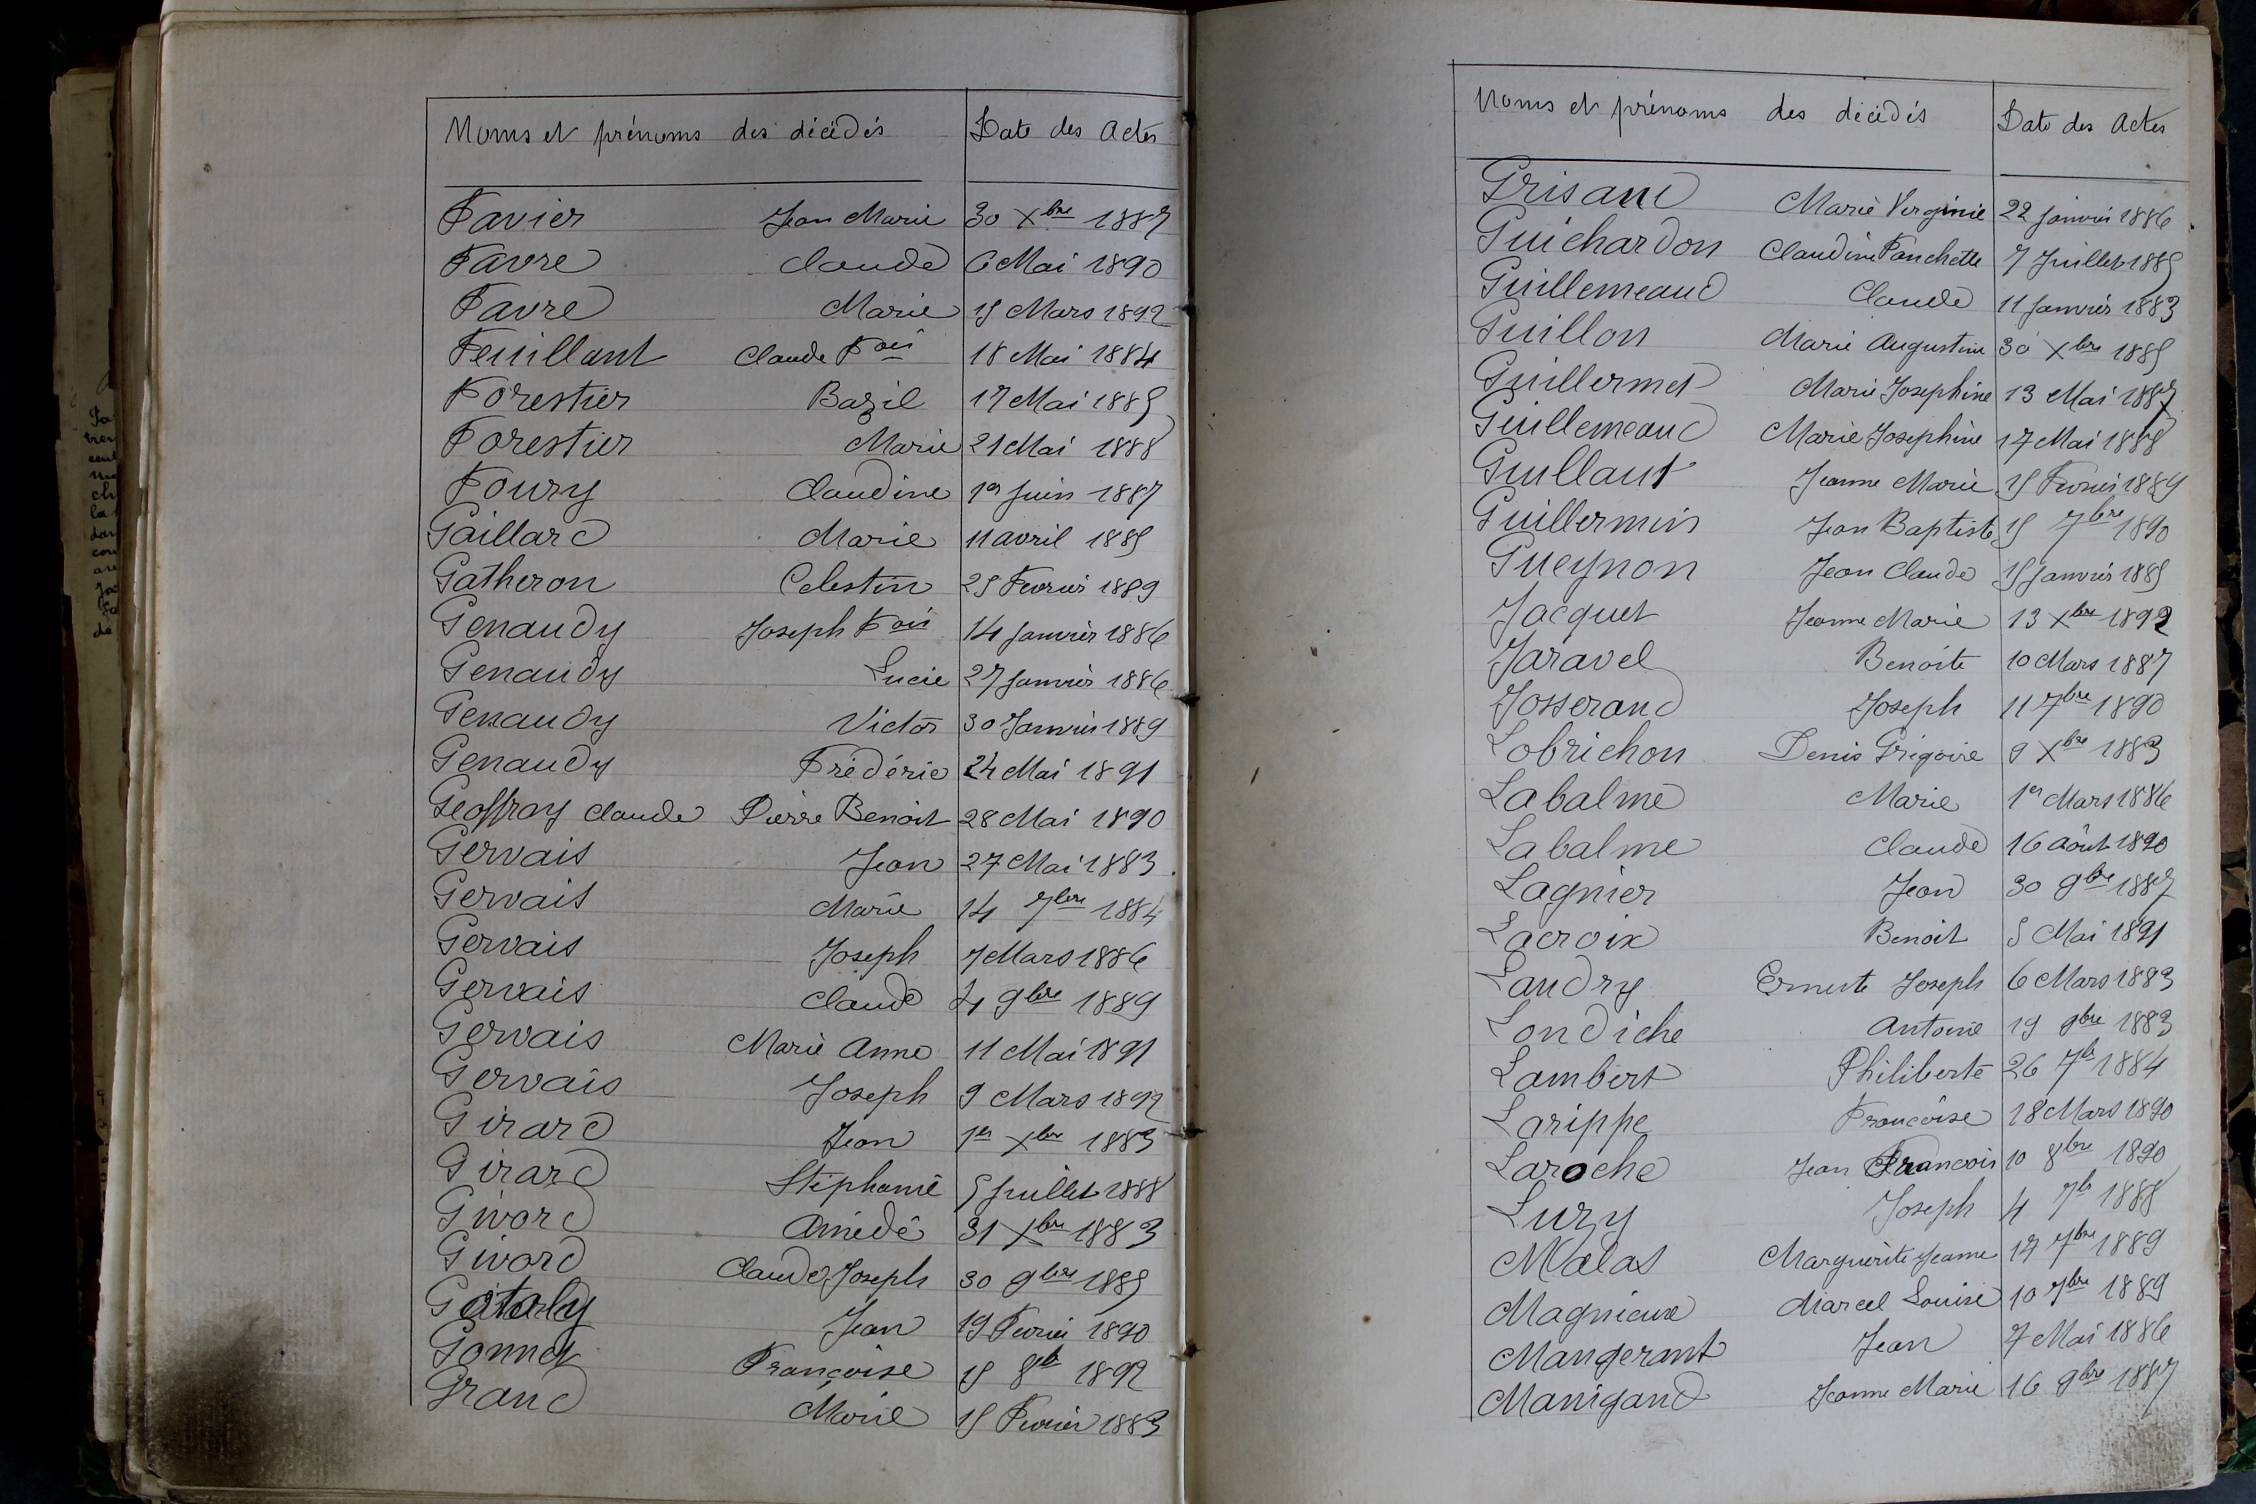 Noms et prénoms des décédés Date des Actes
Favier Jean Marie 30 Xbre 1887
Favre Claude 6 Mai 1890
Favre Marie 15 Mars 1892
Feuillant Claude Fois 18 Mai 1884
Forestier Bazil 17 Mai 1885
Forestier Marie 21 Mai 1888
Foury Claudine 1er Juin 1887
Gaillard Marie 11 avril 1885
Gatheron Celestin 25 Fevrier 1889
Genaudy Joseph Fois 14 Janvier 1886
Genaudy Lucie 27 Janvier 1886
Genaudy Victor 30 Janvier 1889
Genaudy Frédéric 24 Mai 1891
Geoffray Claude Pierre Benoit 28 Mai 1890
Gervais Jean 27 Mai 1883
Gervais Marie 14 7bre 1884
Gervais Joseph 7 Mars 1886
Gervais Claude 4 9bre 1889
Gervais Marie Anne 11 Mai 1891
Gervais Joseph 9 Mars 1892
Girard Jean 1er Xbre 1883
Girard Stéphanie 5 Juillet 1888
Givord Amédé 31 Xbre 1883
Givord Claude Joseph 30 9bre 1885
Jean 19 Fevrier 1890
Gonnet Françoise 15 8b 1892
Grand Marie 15 Fevrier 1883
Noms et prénoms des décédés Date des Actes
Grisard Marie Virginie 22 Janvier 1886
Guichardon Claudine Fanchette 7 Juillet 1885
Guillemeaud Claude 11 Janvier 1883
Guillon Marie Augustine 30 Xbre 1885
Guillermet Marie Josephine 13 Mai 1887
Guillemeaud Marie Josephine 17 Mai 1888
Guillaut Jeanne Marie 15 Fevrier 1889
Guillermin Jean Baptiste 15 7bre 1890
Gueynon Jean Claude 15 Janvier 1885
Jacquet Jeanne Marie 13 Xbre 1892
Jaravel Benoite 10 Mars 1887
Josserand Joseph 11 7bre 1890
Lobrichon Denis Grégoire 9 Xbre 1883
Labalme Marie 1er Mars 1886
Labalme Claude 16 Aôut 1890
Lagnier Jean 30 9bre 1887
Lacroix Benoit 5 Mai 1891
Landry Erneste Joseph 6 Mars 1883
Londiche Antoine 19 9bre 1883
Lambert Philiberte 26 7b 1884
Larippe Francoise 18 Mars 1890
Laroche Jean Francois 10 8bre 1890
Luzy Joseph 4 7b 1888
Malas Marguerite Jeanne 17 7bre 1889
Magnieux Marcel Louise 10 7bre 1889
Mangerant Jean 7 Mai 1886
Manigand Jeanne Marie 16 9bre 1887